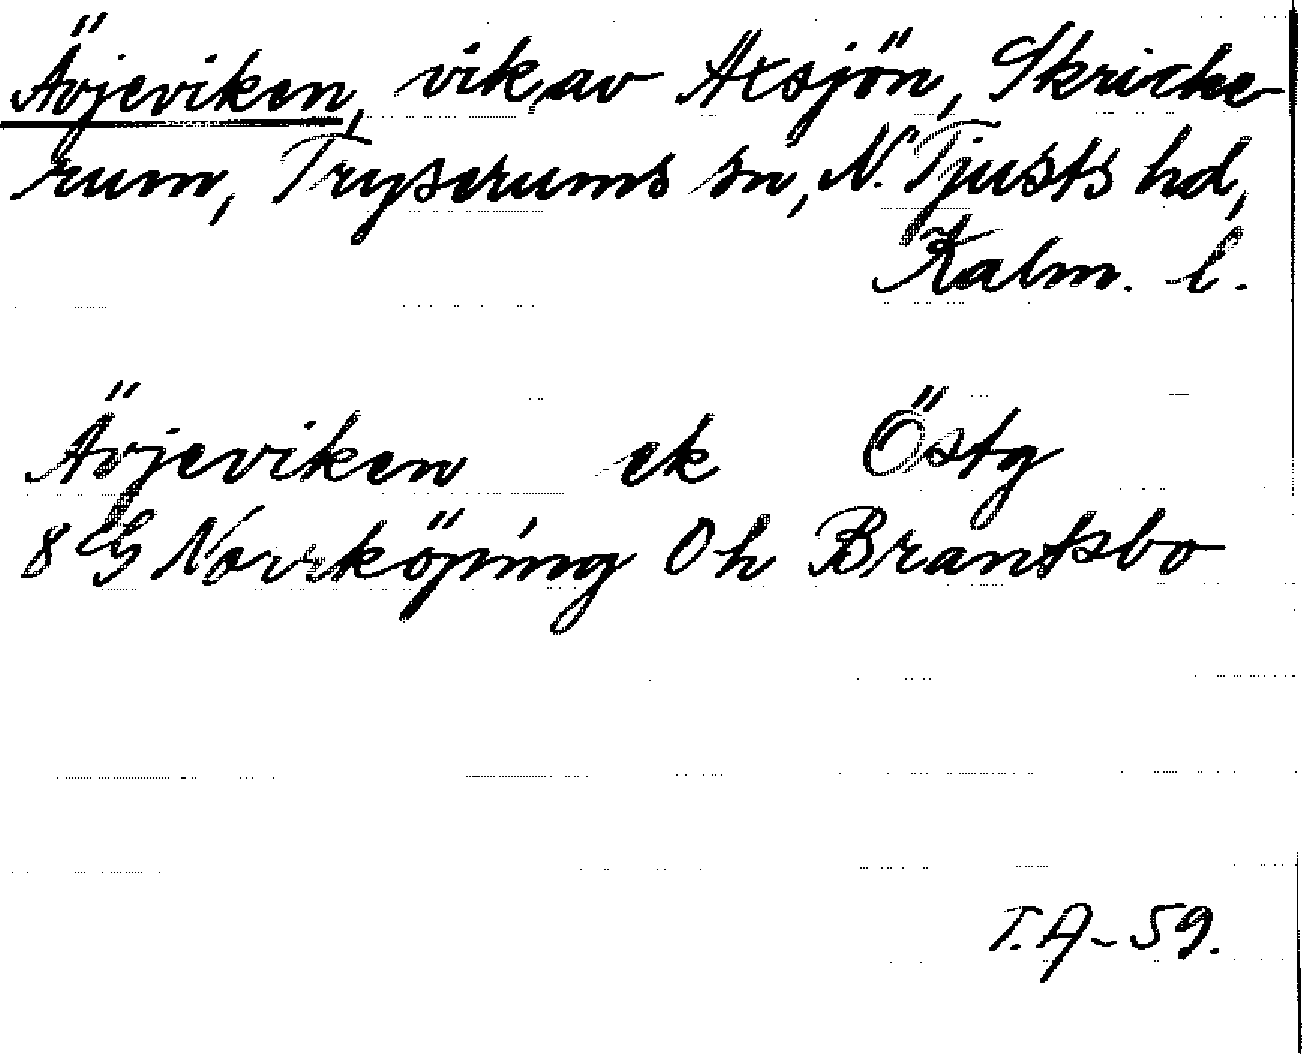 Ävjeviken, vik av Äxsjön, Skricke-
rum, Tryserums sn, N. Tjusts hd,
Kalm. l.
Ävjeviken ek Östg
8 G Norrköping Oh Brantsbo
T.A-59.